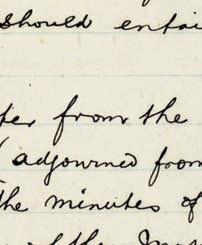 should entai
ter from the
( adjourned from
the minutes of
of the